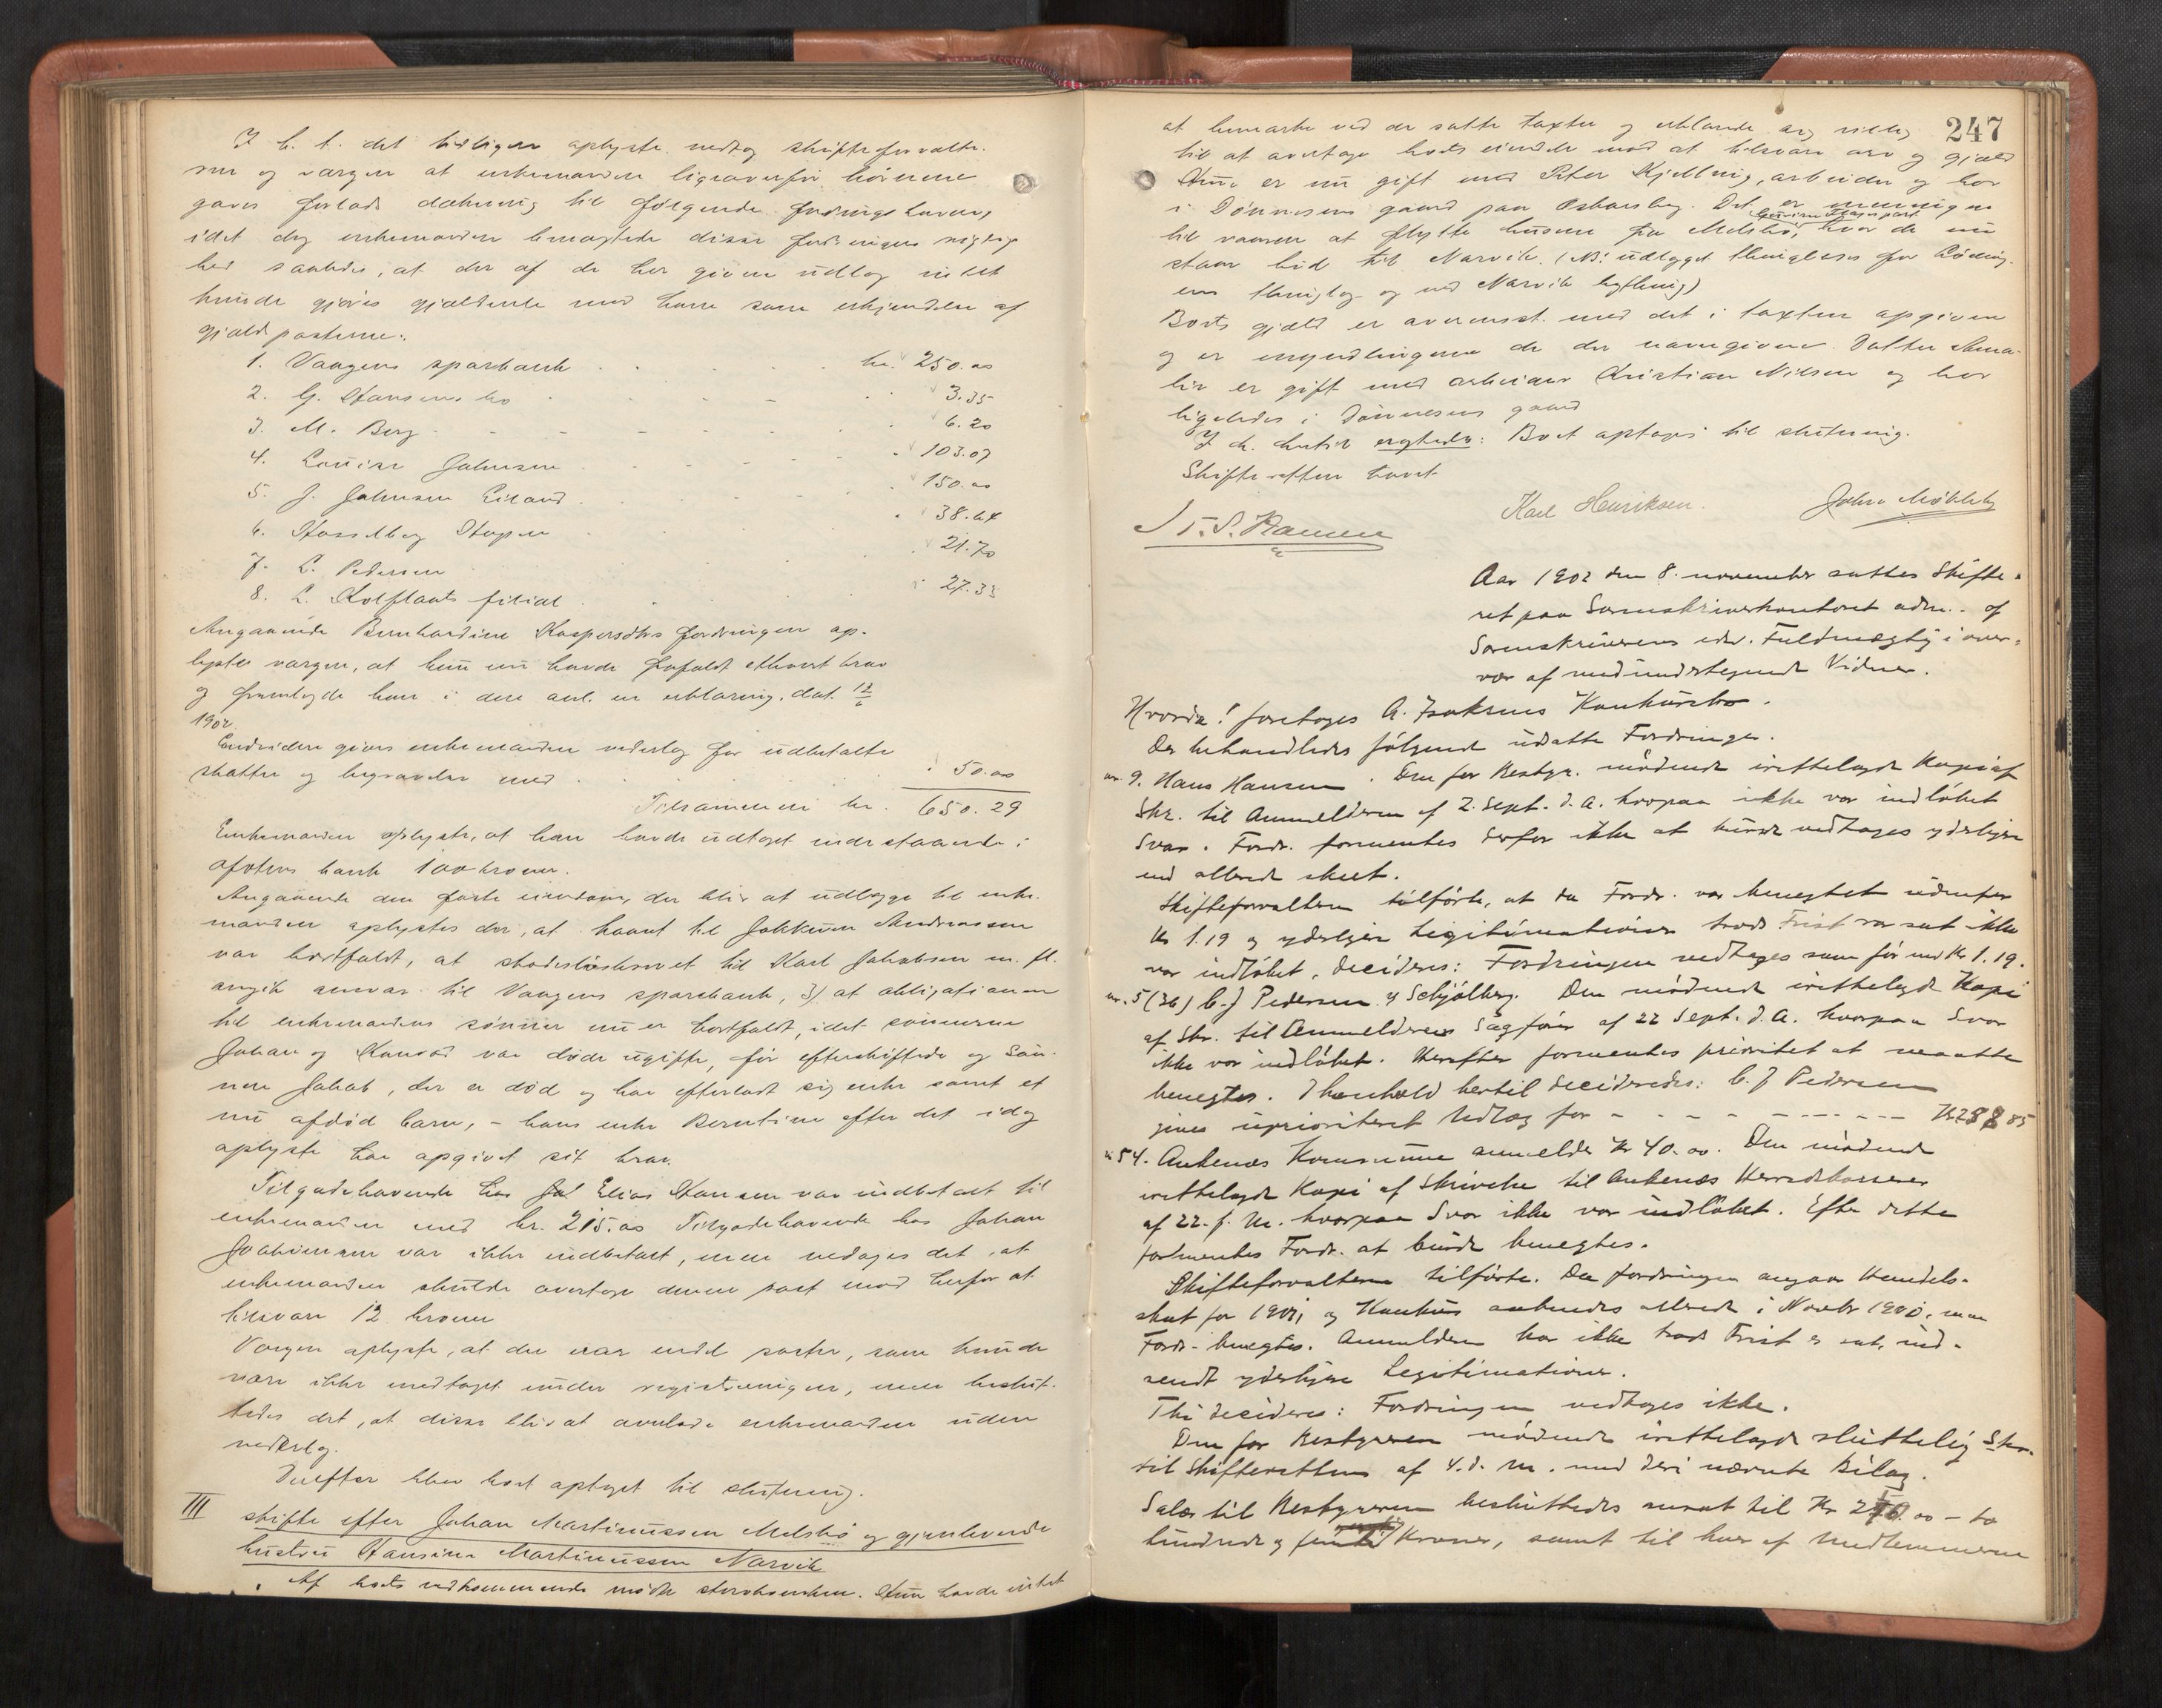 I h. t. det tidligere oplyste vedtog skifteforvalte-
ren og værgen at enkemanden ligeoverfor börnene
gaves forlods dækning til følgende fordringshavere,
idet dog enkemanden benægtede disse fordringers rigtig-
hed saaledes, at der af de her givne udlæg intet
kunde gjöres gjældende mod ham som erkjendelse af
gjældsposterne:
1. Vaagens sparbank kr. 250.00
2. G. Hansens bo 3.35
3. M. Berg 6.20
4. Louise Johnsen 103.07
5. J. Johnsen Eiland 150.00
6. Hasselberg Stapnes 38.64
7. L. Pedersen 21.70
8. L. Kolflaats filial 27.33
Angaaende Bernhardine Kaspersdtrs fordringer op-
lyste værgen, at hun nu havde frafaldt ethvert krav
og fremlagde han i den anl. en erklæring dat. 12/6
1902.
Endvidere gives enkemanden vederlag for udbetalte
skatter og begravelse med 50.00
Tilsammen kr. 650.29
Enkemanden oplyste, at han havde udtaget indestaaende i
Lofotens bank 100 kroner.
Angaaende den faste eiendom, der blir at udlægge til enke-
manden oplystes der, at kaaret til Jakkum Andreassen
var bortfaldt, at skadesløsbrevet til Karl Jakobsen m. fl.
angik ansvar til Vaagens sparebank, 3) at obligationen
til enkemandens sönner nu er bortfaldt, idet sönnerne
Johan og Konrad var döde ugifte, för efterskiftede og Sön-
nen Jakob, der er död og har efterladt sig enke samt et
nu afdöd barn, – hans enke Berntine efter det idag
oplyste har opgivet sit krav.
Tilgodehavende hos Jol Elias Hansen var indbetalt til
enkemanden med kr. 215.00 Tilgodehavende hos Johan
Joakimsen var ikke indbetalt, men vedtages det, at
enkemanden skulde overtage denne post mod herfor at
tilsvare 12 kroner
Værgen oplyste, at der var endel poster, som kunde
være ikke medtaget under registreringen, men beslut-
tedes det, at disse blir at overlade enkemanden uden
vederlag.
Derefter blev boet optaget til slutning.
III skifte efter Johan Martinussen Melsbö og gjenlevende
hustru Hansine Martinussen Narvik
Af boets vedkommende mödte stervboenken. Hun havde intet
247
at bemærke ved de satte taxter og erklærede sig villig
til at overtage boets eiendele mod at tilsvare arv og gjæld
Hun er nu gift med Peter Kjeldning, arbeider og bor
i Dönnesens gaard paa Oskarsborg. Det er meningen
til vaaren at flytte husene fra Melsbö, hvor de nu
staar hid til Narvik. (NB: udlægget thinglæses for Lödingens
thinglag og ved Narvik bything)
Boets gjæld er overensst. med det i taxten opgivne
og er myndlingerne de der navngivne. Datter Ama-
lie er gift med arbeider Kristian Nilsen og bor
ligeledes i Dönnesens gaard
I h. hertil eragtedes: Boet optages til slutning.
Skifteretten hævet
J. S. Hansen Karl Henriksen. Johan Meökleby
Aar 1902 den 8. november sattes Skifte-
ret paa Sorenskriverkontoret adm. af
Sorenskriverens edsv. Fuldmægtig i over-
vær af medundertegnende Vidner.
Hvorda! foretoges A. Isaksens Konkursbo.
Der behandledes følgende udsatte Fordringer.
nr. 9. Hans Hansen. Den for Bestyr. mödende irettelagde Kopi af
Skr. til Anmelderen af 2. Sept. d. A. hvorpaa ikke var indløbet
Svar. Fordr. formentes derfor ikke at burde vedtages yderligere
end allerede skeet.
Skifteforvalteren tilførte, at da Fordr. var benegtet udenfor
Kr 1.19 og yderligere Legitimationer trods Frist var sat ikke
var indløbet, decideres: Fordringen vedtages som før med Kr. 1.19.
nr. 5 (36) C. J Pedersen v/ Schjölberg. Den mødende irettelagde Kopi
af Skr. til Anmelderens Sagfører af 22 Sept. d. A. hvorpaa Svar
ikke var indløbet. Herefter formentes prioritet at maatte
benegtes. I Henhold hertil decideredes: C. J Pedersen
gives uprioriteret Udlæg for Kr 288 85
nr 54. Ankenes Kommune anmelder Kr 40.00. Den mødende
irettelagde Kopi af Skrivelse til Ankenæs Herredskasserer
af 22. f. M. hvorpaa Svar ikke var indløbet. Efter dette
formentes Fordr. at burde benegtes.
Skifteforvalteren tilførte. Da fordringen angaar Handels-
skat for 1901, og Konkurs aabnedes allerede i Novbr 1900, maa
Fordr. benegtes. Anmelderen har ikke trods Frist er sat, ind-
sendt yderligere Legitimationer.
Thi decideres: Fordringen vedtages ikke.
Den for Bestyreren mödende irettelagde sluttelig Skr.
til Skifteretten af 4. d. M. med deri nævnte Bilag.
Salær til Bestyreren besluttedes ansat til Kr 250.00 – to
hundrede og femti Kroner, samt til hver af Medlemmerne